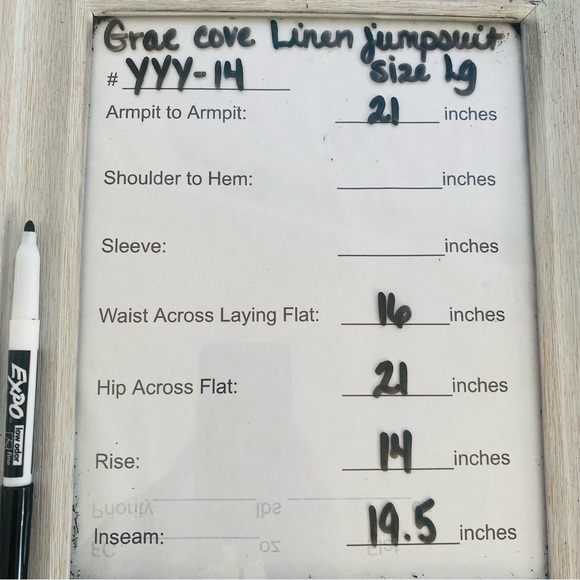 Grae cove Linen jumpsuit
# YYY-14 size Lg
Armpit to Armpit: 21 inches
Shoulder to Hem: inches
Sleeve: inches
Waist Across Laying Flat: 16 inches
Hip Across Flat: 21 inches
Rise: 14 inches
Priority lbs
Inseam: 19.5 inches
FC oz Flat
EXPO
low odor
fine